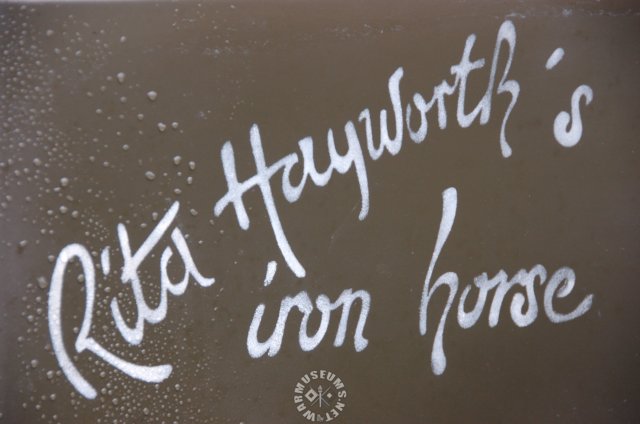 Rita Hayworth's
iron horse
WARMUSEUMS.NET